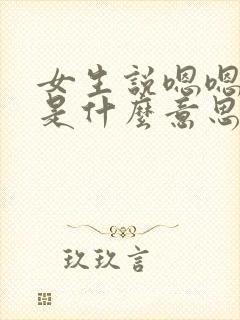 女生説嗯嗯
是什麼意思
玖玖言